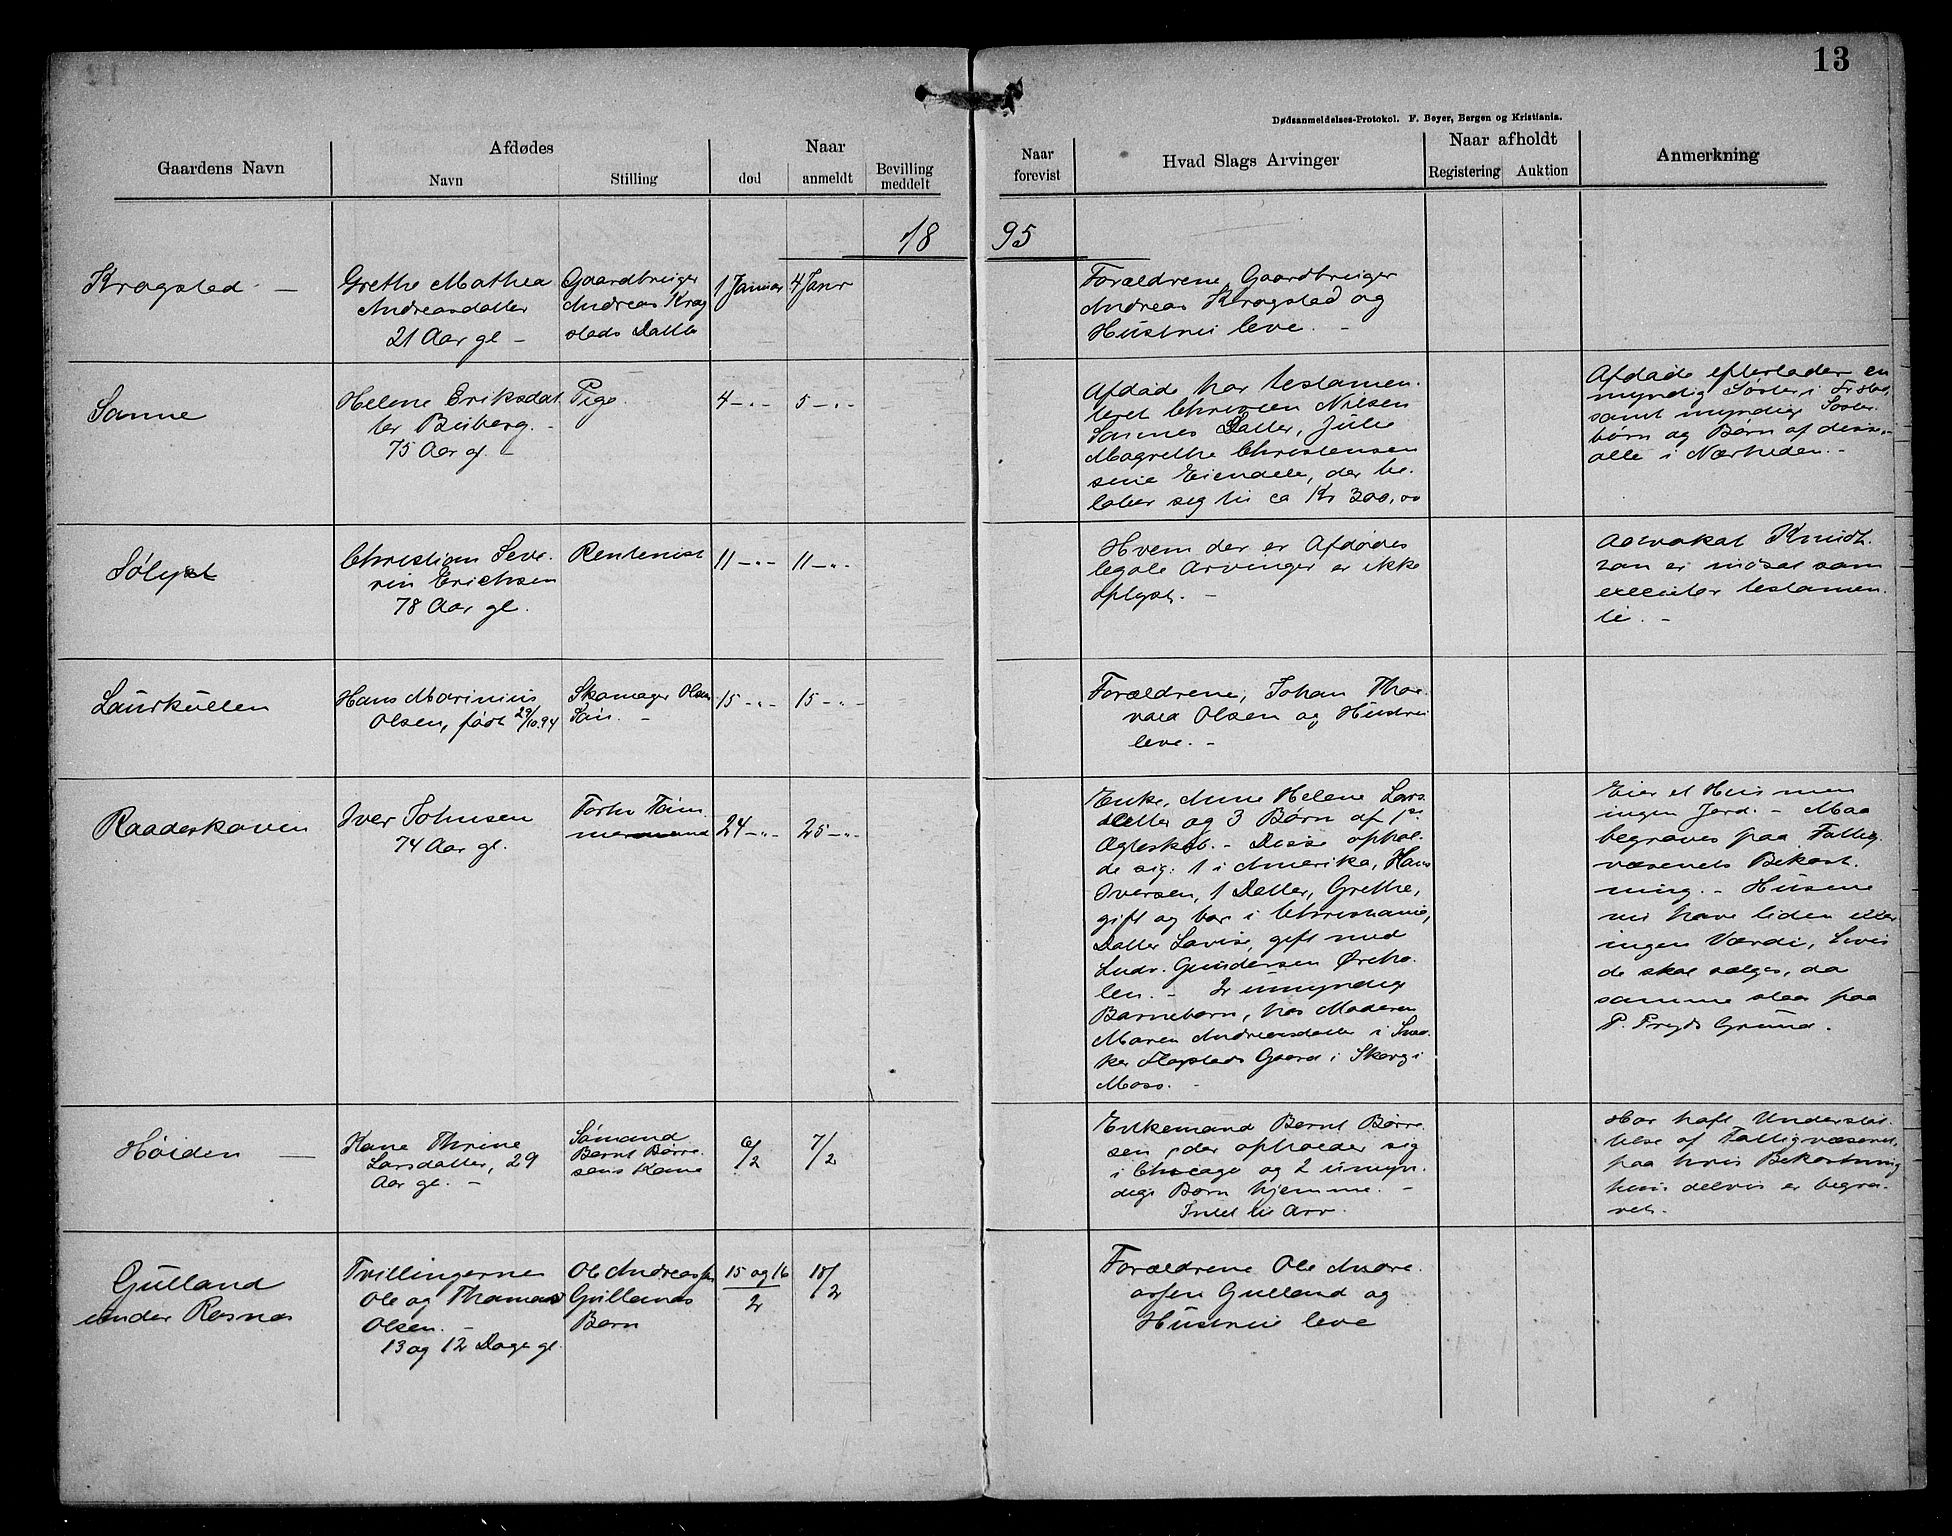 13
Dødsanmeldelses-Protokol. F. Beyer, Bergen og Kristiania.
Gaardens Navn
Afdødes
Navn
Stilling
Naar
død
anmeldt
Bevilling
meddelt
Naar
forevist
Hvad Slags Arvinger
Naar afholdt
Registering
Auktion
Anmerkning
18 95
Kragsted -
Grethe Mathea
Andreasdatter
21 Aar gl -
Gaardbruger
Andreas Krag
steds Datter
1 Januar
4 Janr
Forældrene, Gaardbruger
Andreas Kragstad og
Hustru leve. -
Sanne
Helene Eriksdat
ter Buberg. -
75 Aar gl. -
Pige.
4 -"-
5 -"-
Afdøde har testamen.
teret Christen Nilsen
Sannes Datter, Julie
Magrethe Christensen
sine Eiendele, der be.
løber sig til ca Kr 300,00
Afdøde efterlader en
myndig Søster i Fr.stad,
samt myndige Søster.
børn og Børn af disse, -
alle i Nærheden. -
Sølyst
Christian Seve
rin Erichsen
78 Aar gl.
Rentenist
11 -"-
11 -"-
Hvem der er Afdødes
legale Arvinger er ikke
oplyst. -
Advokat Knudt.
zon er indsat som
executor testamen.
ti. -
Laurkullen
Hans Marinius
Olsen, født 29/10.94
Skomager Olsens
Søn. -
15 -"-
15 -"-
Forældrene, Johan Thor.
vald Olsen og Hustru
leve. -
Raadeskoven
Iver Johnsen
74 Aar gl.
Forhv Tøm
mermand
24 -"-
25 -"-
Enke, Anne Helene Lars.
datter og 3 Børn af
Ægteskab. - Disse ophol.
de sig: 1 i Amerika, Hans
Iversen, 1 Datter, Grethe,
gift og bor i Christiania,
Datter Lovise, gift med
Ludv. Gundersen Øreho.
len. - 2 umyndige
Barnebørn, hos Moderen
Maren Andreasdatter i
Gaard i Skovg i
Moss. -
Eier et Hus men
ingen Jord. - Maa
begraves paa Fattig.
væsenets Bekost.
ning. - Husene
vil have liden eller
ingen Værdi, hvis
de skal sælges, da
samme staar paa
P. Fryds Grund.
Høiden -
Kone Thrine
Larsdatter, 29
Aar gl. -
Sømand
Bernt Børre.
sens Kone
6/2
7/2
Enkemand Bernt Børre.
sen, der opholder sig
i Chicago og 2 umyn.
dige Børn hjemme. -
Intet til Arv.
Har haft Understøt
telse af Fattigvæsenet,
paa hvis Bekostning
hun delvis er begra.
vet.
Gulland
under Rosnæs
Tvillingerne
Ole og Thomas
Olsen. -
13 og 12 Dage gl
Ole Andreassen
Gullands
Børn
15 og 16
2
18/2
Forældrene Ole Andre.
assen Gulland og
Hustru leve